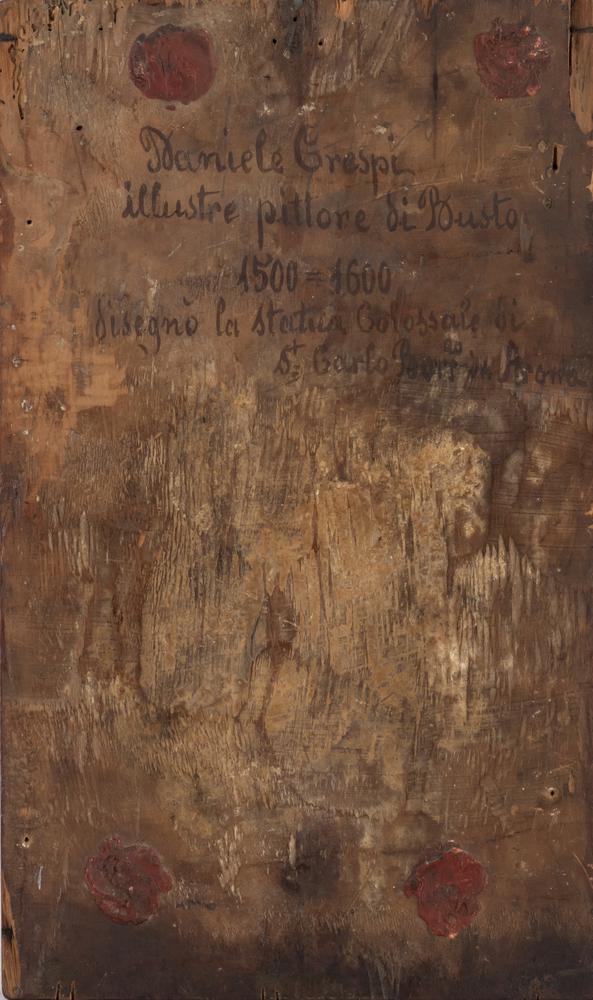 Daniele Crespi
illustre pittore di Busto
1500 = 1600
disegnò la statua Colossale di
St. Carlo Borr in Arona